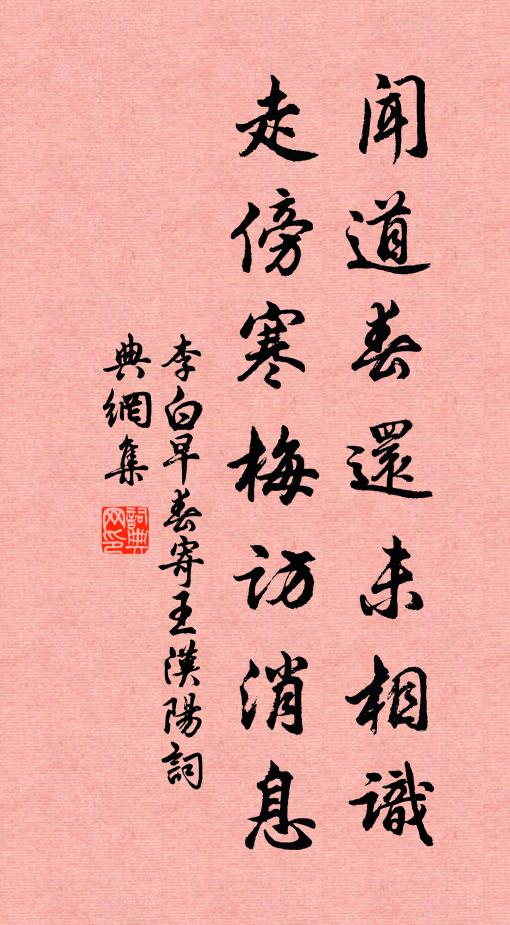 聞道春還未相識
走傍寒梅訪消息
李白早春寄王漢陽詞
典網集
詞典
网印